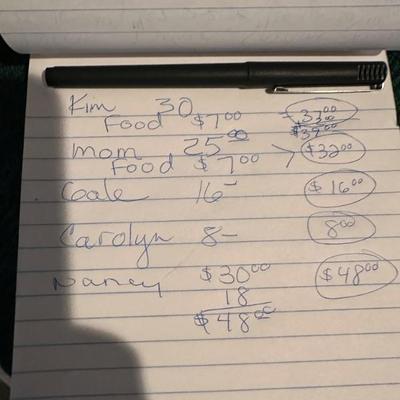 Kim 30
Food $7.00 37.00
$39.00
Mom 25.00
Food $7.00 > $32.00
Coale 16- $16.00
Carolyn 8- 8.00
Nancy $30.00 $48.00
18
$48.00